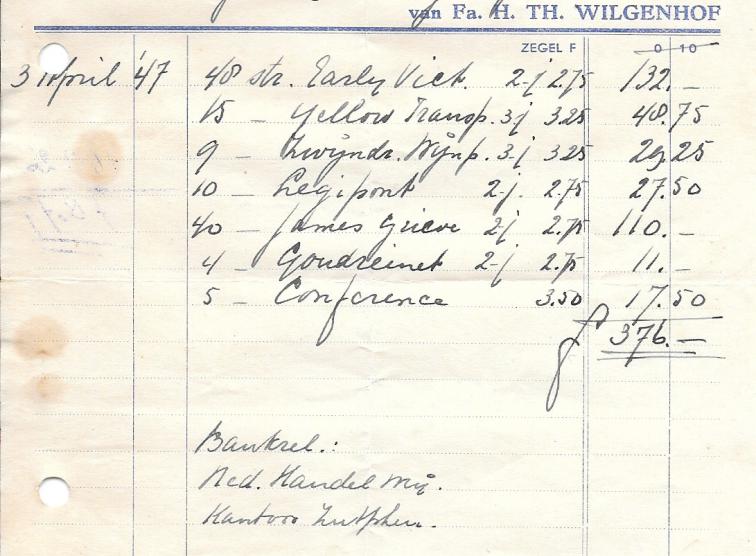 van Fa. H. TH. WILGENHOF
ZEGEL F 0 10
3 April '47 48 str. Early Vict. 2-j 2.75 132.-
15 - Yellow Transp. 3-j 3.25 48.75
9 - Zwijndr. Wijnp. 3-j 3.25 29.25
10 - Legipont 2-j. 2.75 27.50
40 - James Grieve 2-j 2.75 110.-
4 - Goudreinet 2-j 2.75 11.-
5 - Conference 3.50 17.50
f 376.-
Bankrel.:
Ned. Handel Mij.
Kantoor Zutphen.